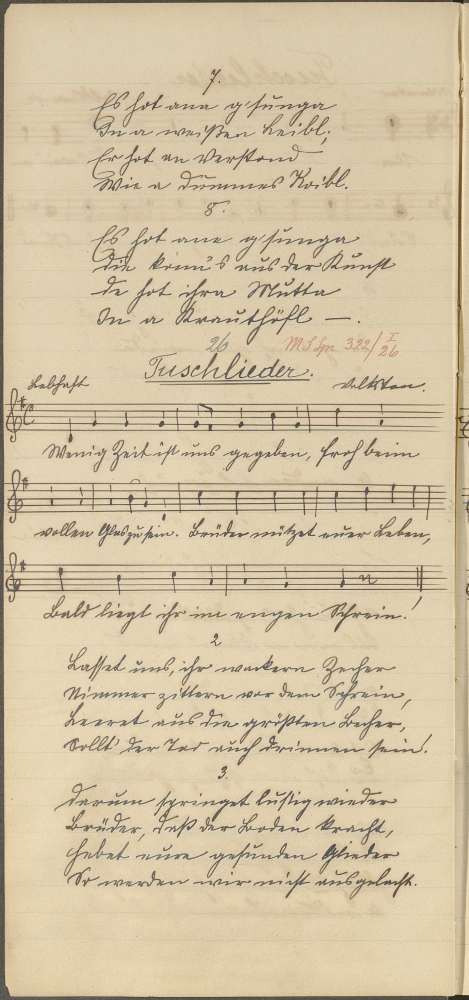 7.
Es hot ana g'sunga
In a weißen Leibl,
Er hot an Verstand
Wie a dummes Kaibl.
8.
Es hot ana g'sunga
Die kimmt's aus der Kunst
de hot ihra Mutta
In a Krauthöfl —.
26 M S Spr 322/I 26
Tuschlieder.
Lebhaft Volkston.
Wenig Zeit ist uns gegeben, froh beim
vollen Glas zu sein. Brüder nützet euer Leben,
Bald liegt ihr im engen Schrein.
2
Lasset uns, ihr wackern Zecher
Nimmer zittern vor dem Schrein,
Leeret aus die größten Becher,
Sollt' der Tod auch drinnen sein!
3.
Darum springet lustig wieder
Brüder, daß der Boden kracht,
Hebet eure gesunden Glieder
So werden wir nicht ausgelacht.